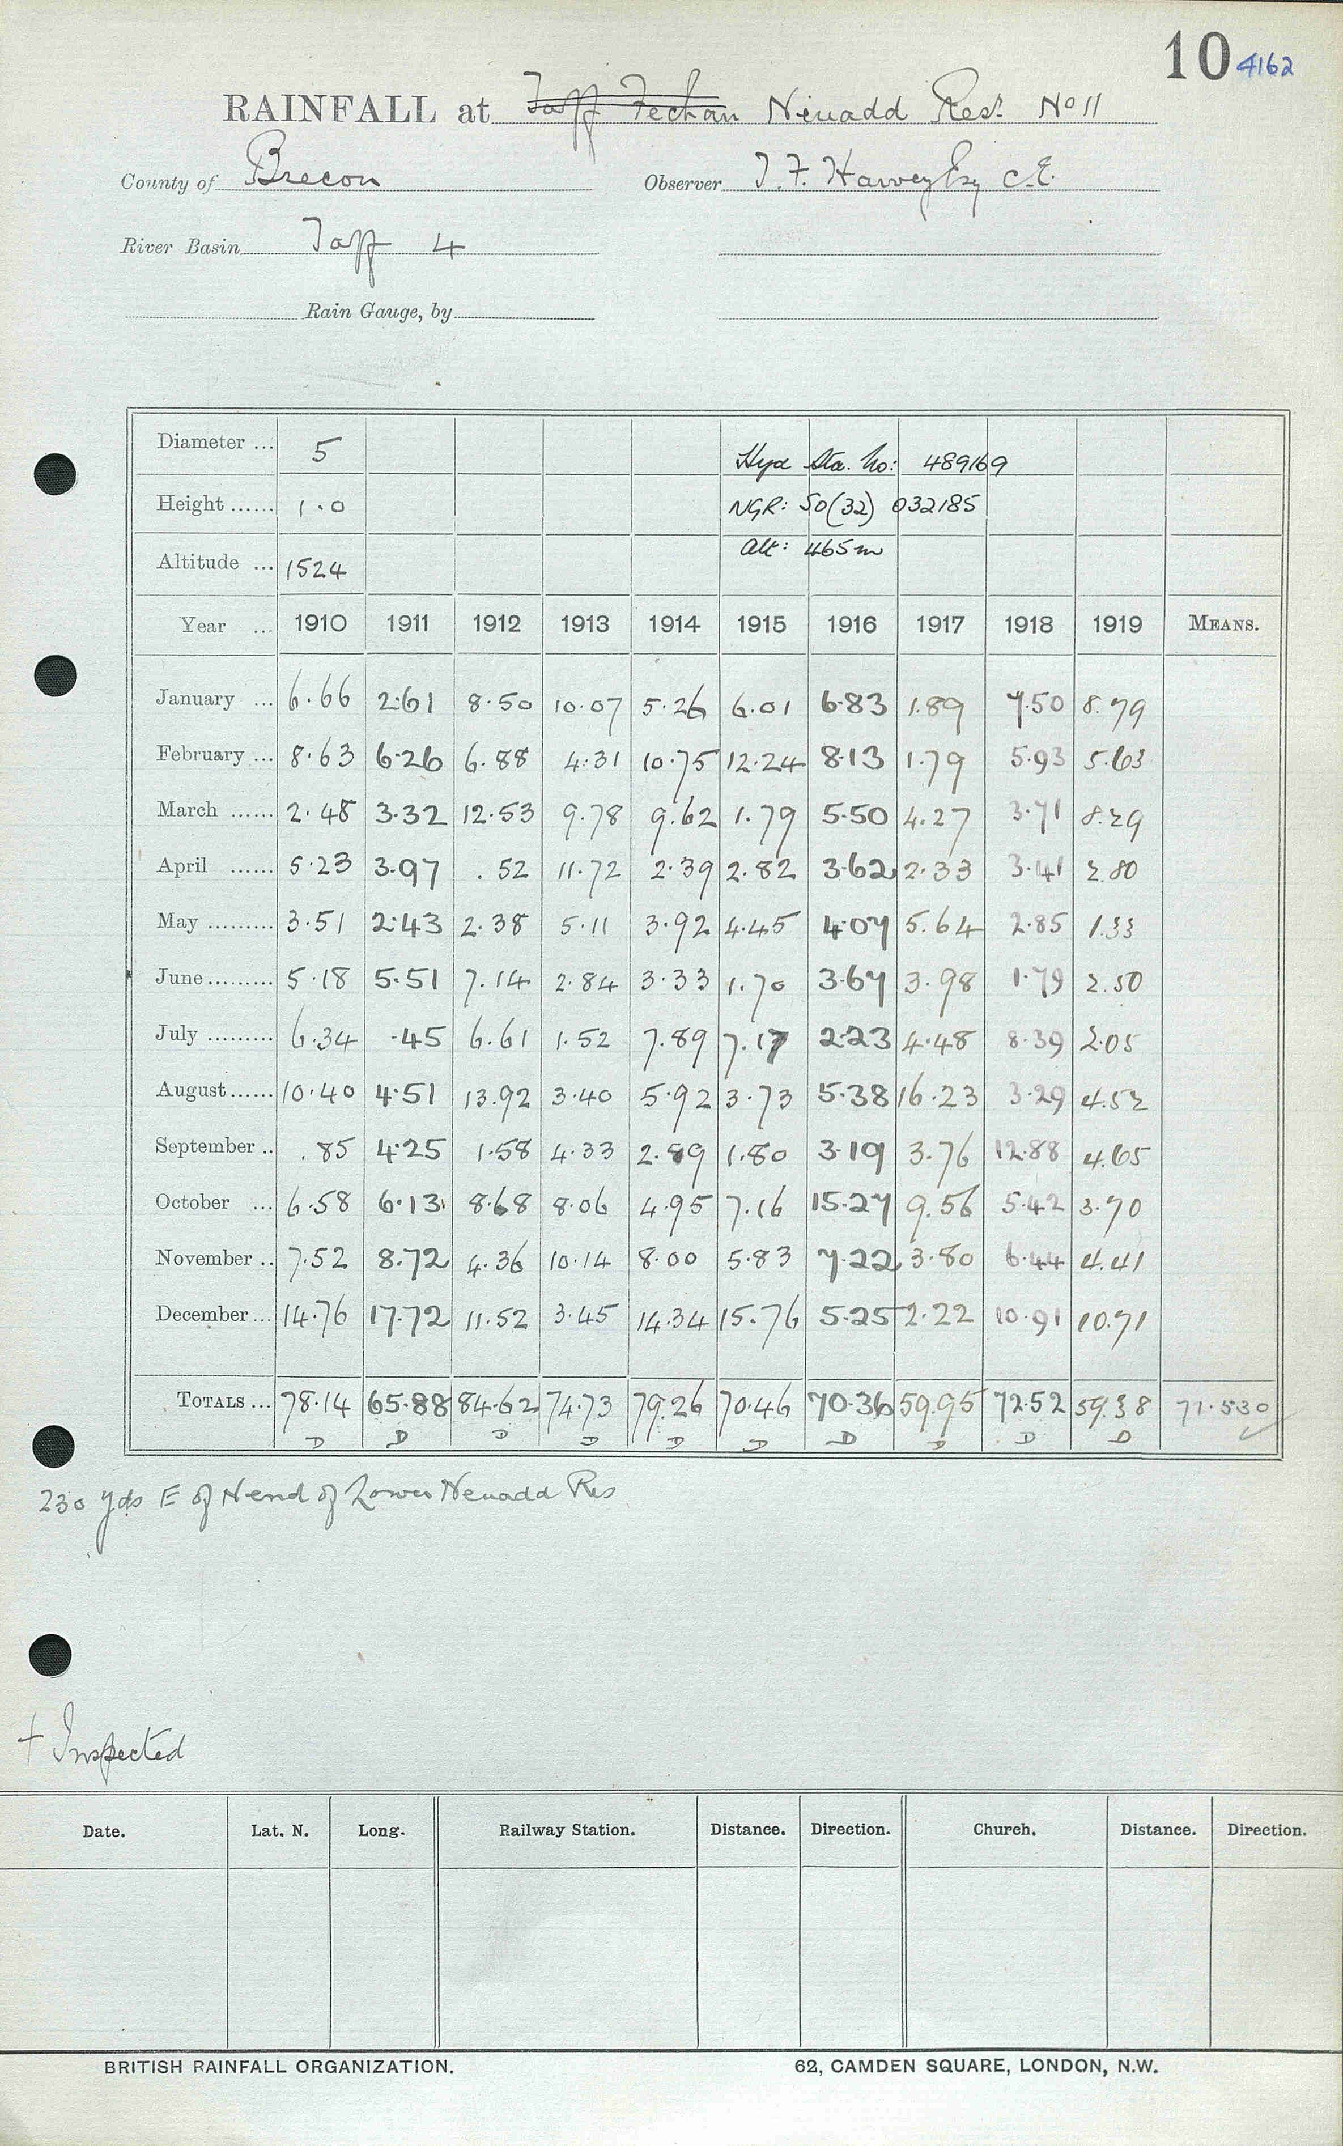 10 4162
RAINFALL at Taff Fechan Neuadd Res. No 11
County of Brecon Observer T. F. Harvey Esq C.E.
River Basin Taff 4
Rain Gauge, by
Diameter ... 5 Hyd Sta. No: 489169
Height ...... 1.0 NGR: SO(32) 032185
Altitude ... 1524 Alt: 465m
Year ... 1910 1911 1912 1913 1914 1915 1916 1917 1918 1919 MEANS.
January ... 6.66 2.61 8.50 10.07 5.26 6.01 6.83 1.89 7.50 8.79
February ... 8.63 6.26 6.88 4.31 10.75 12.24 8.13 1.79 5.93 5.63
March ...... 2.48 3.32 12.53 9.78 9.62 1.79 5.50 4.27 3.71 8.29
April ...... 5.23 3.97 .52 11.72 2.39 2.82 3.62 2.33 3.41 2.80
May ......... 3.51 2.43 2.38 5.11 3.92 4.45 4.07 5.64 2.85 1.33
June ......... 5.18 5.51 7.14 2.84 3.33 1.70 3.67 3.98 1.79 2.50
July ......... 6.34 .45 6.61 1.52 7.89 7.17 2.23 4.48 8.39 2.05
August ...... 10.40 4.51 13.92 3.40 5.92 3.73 5.38 16.23 3.29 4.52
September .. .85 4.25 1.58 4.33 2.89 1.80 3.19 3.76 12.88 4.65
October ... 6.58 6.13 8.68 8.06 4.95 7.16 15.27 9.56 5.42 3.70
November .. 7.52 8.72 4.36 10.14 8.00 5.83 7.22 3.80 6.44 4.41
December ... 14.76 17.72 11.52 3.45 14.34 15.76 5.25 2.22 10.91 10.71
TOTALS ... 78.14 65.88 84.62 74.73 79.26 70.46 70.36 59.95 72.52 59.38 71.530
D D D D D D D D D D
230 yds E of N end of Lower Neuadd Res
+ Inspected
Date. Lat. N. Long. Railway Station. Distance. Direction. Church. Distance. Direction.
BRITISH RAINFALL ORGANIZATION. 62, CAMDEN SQUARE, LONDON, N.W.